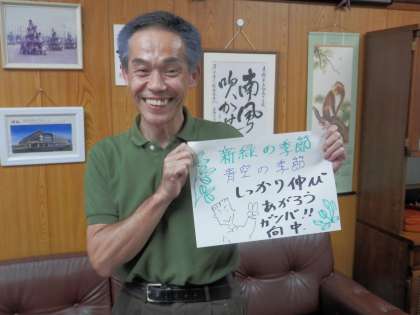 新緑の季節
青空の季節
しっかり伸び
あがろう
ガンバ!!
向中.
南風
吹かせ